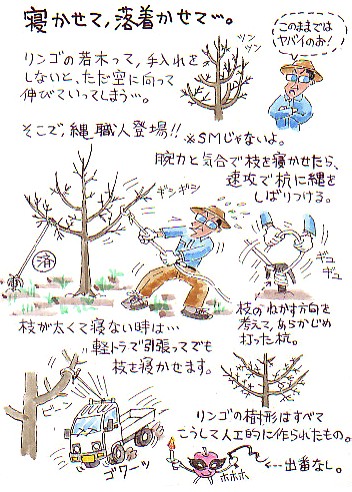 寝かせて,落着かせて…。
リンゴの若木って,手入れを
しないと,ただ空に向って
伸びていってしまう…。
ツン
ツン
このままでは
ヤバイのお!
そこで,縄職人登場!!
※SMじゃないよ。
腕力と気合で枝を寝かせたら、
速攻で杭に縄を
しばりつける。
ギシギシ
済
ギュ
ギュ
枝のねかす方向を
考えて,あらかじめ
打った杭。
枝が太くて寝ない時は…
軽トラで引張ってでも
枝を寝かせます。
ピーン
ゴワーッ
リンゴの樹形はすべて
こうして人工的に作られたもの。
ホホホ
出番なし。